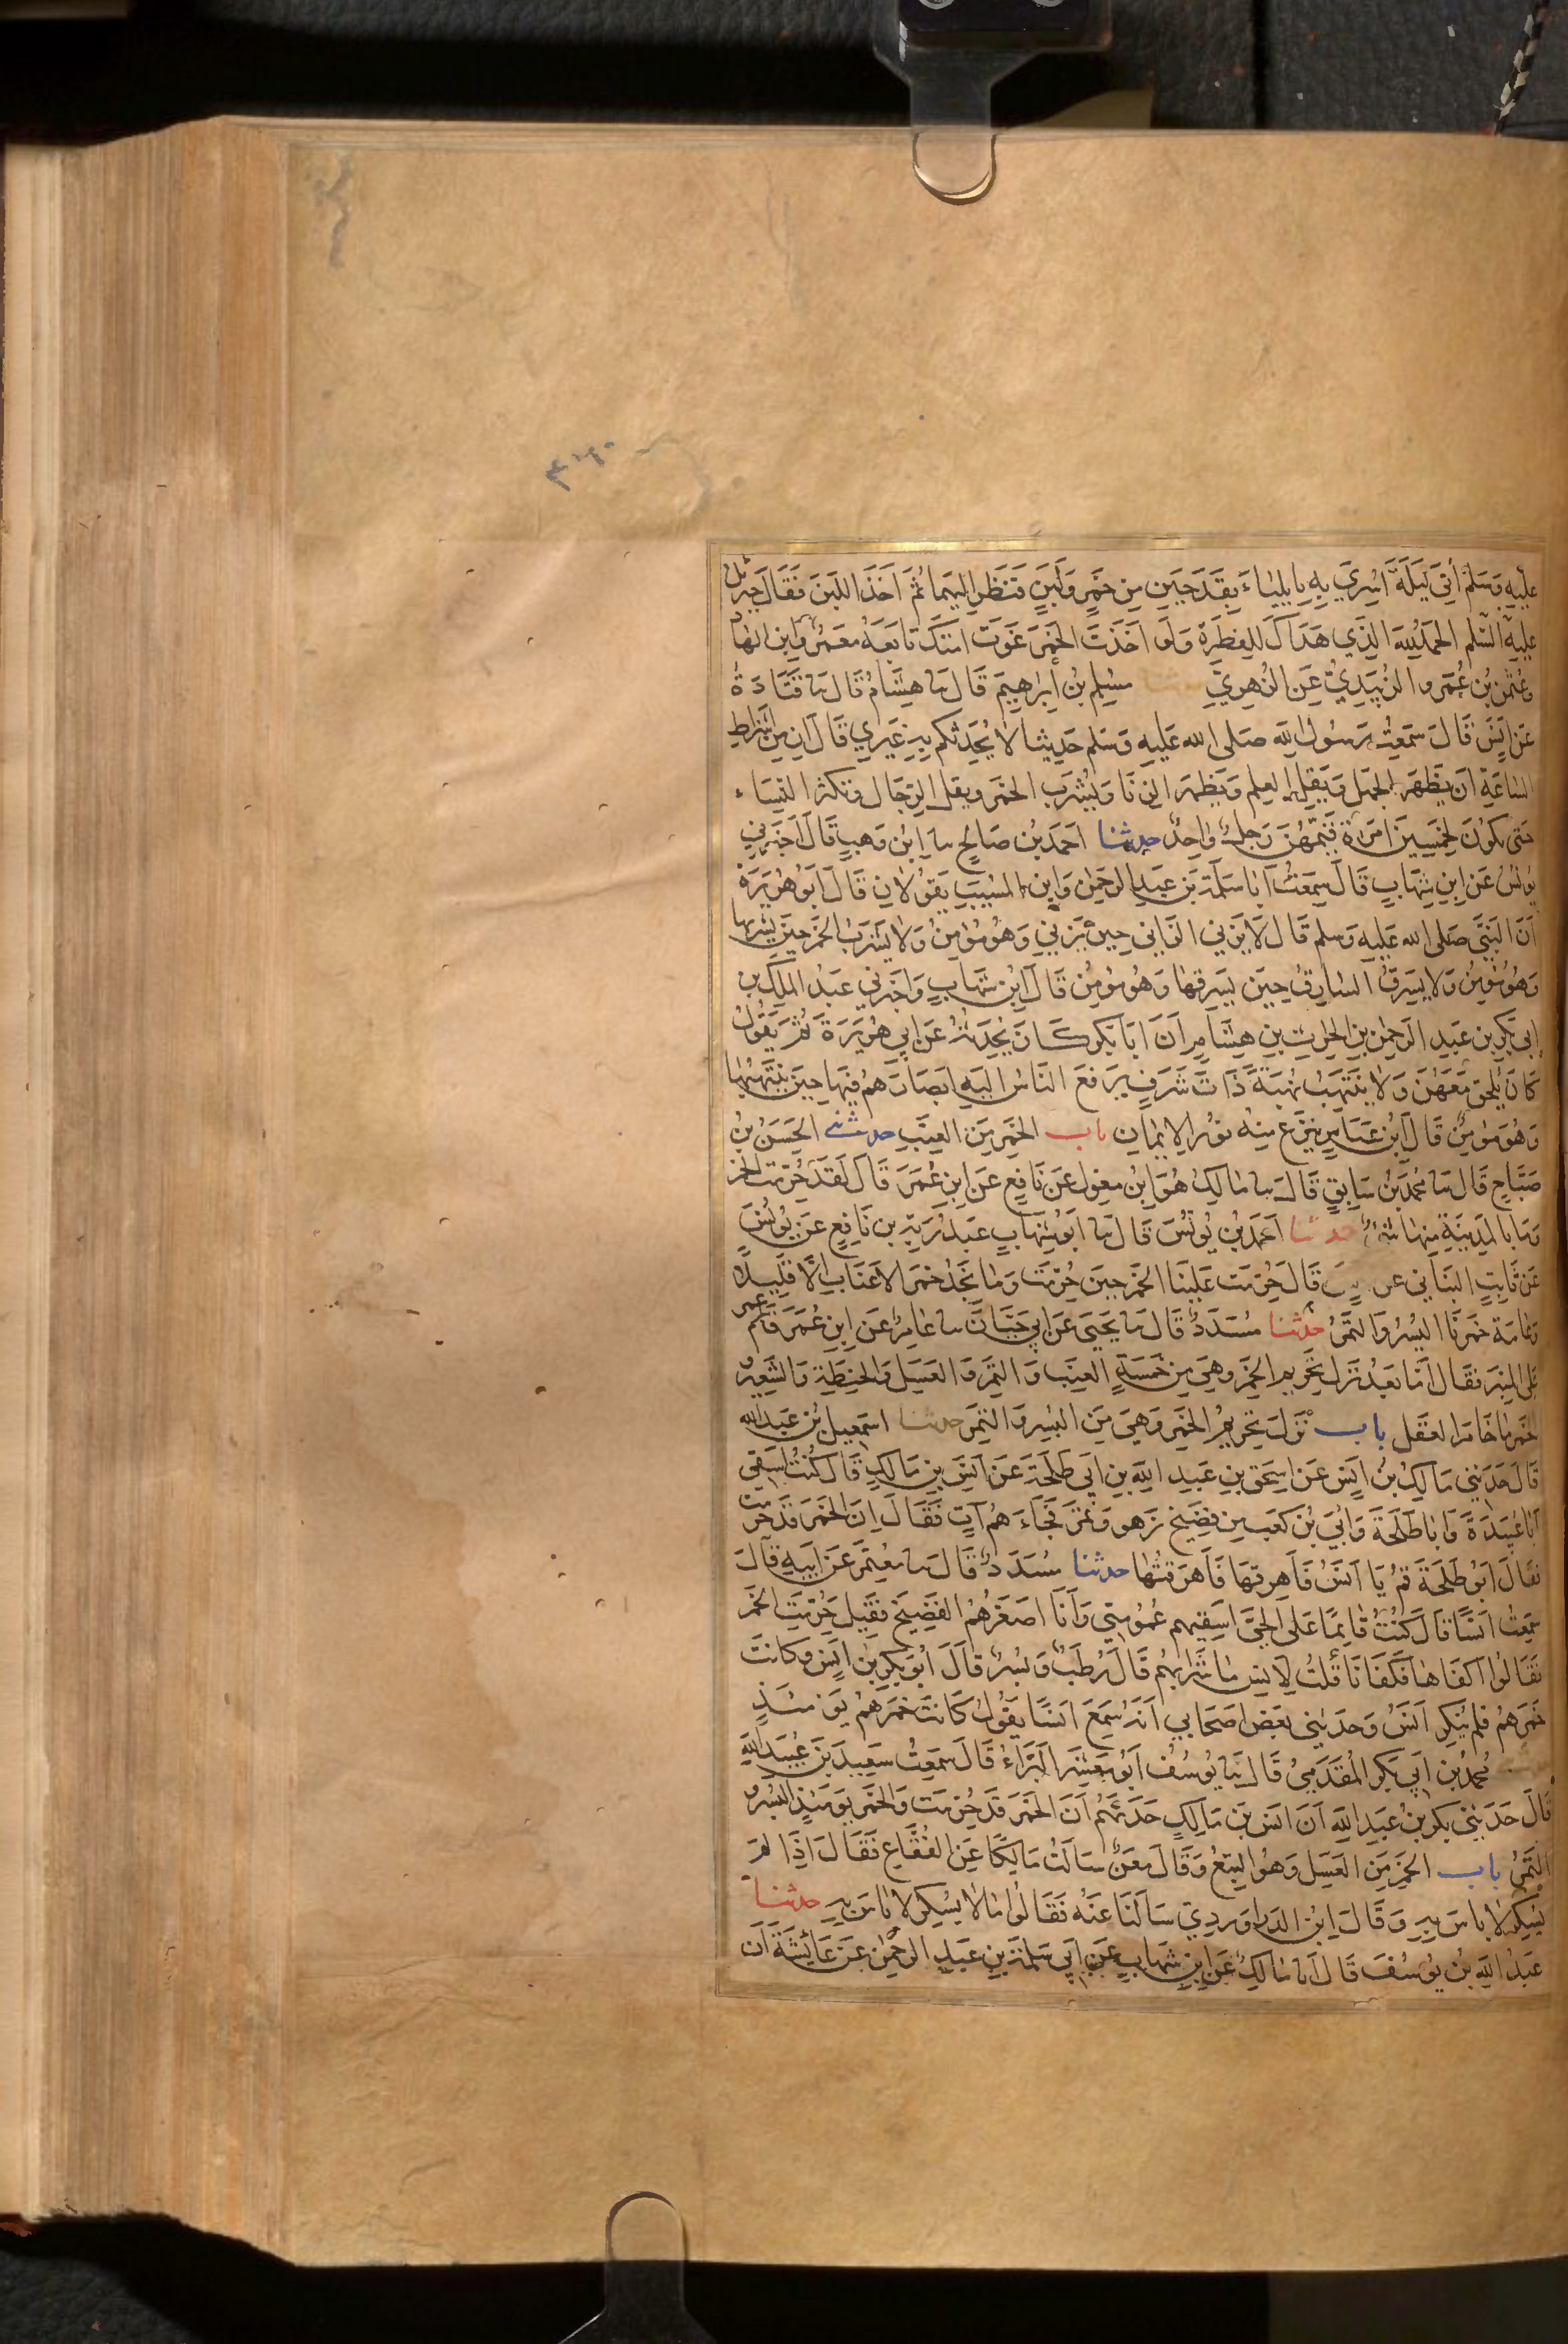 عليه وسلم أتي ليلة اسري به بايلياء بقدحين من خمر ولبن فنظر اليهما ثم اخذ اللبن فقال جبريل
عليه السلم الحمد لله الذي هداك للفطرة ولو اخذت الخمر غوت امتك تابعه معمر وابن الهاد
وعثمن بن عمرو الزبيدي عن الزهري مسلم بن ابرهيم قال نا هشام قال نا قتادة
عن انس قال سمعت رسول الله صلى الله عليه وسلم حديثا لا يحدثكم به غيري قال ان من اشراط
الساعة ان يظهر الجهل ويقل العلم ويظهر الزنا ويشرب الخمر ويقل الرجال وتكثر النساء
حتى يكون لخمسين امراة قيمهن رجل واحد حدثنا احمد بن صالح نا ابن وهب قال اخبرني
يونس عن ابن شهاب قال سمعت ابا سلمة بن عبد الرحمن وابن المسيب يقولان قال ابو هريرة
ان النبي صلى الله عليه وسلم قال لا يزني الزاني حين يزني وهو مؤمن ولا يشرب الخمر حين يشربها
وهو مؤمن ولا يسرق السارق حين يسرقها وهو مؤمن قال ابن شهاب واخبرني عبد الملك بن
ابي بكر بن عبد الرحمن بن الحرث بن هشام ان ابا بكر كان يحدثه عن ابي هريرة ثم يقول
كان يلحق معهن ولا ينتهب نهبة ذات شرف يرفع الناس اليه ابصارهم فيها حين ينتهبها
وهو مؤمن قال ابن عباس ينزع منه نور الايمان باب الخمر من العنب حدثني الحسن بن
صباح قال نا محمد بن سابق قال نا مالك هو ابن مغول عن نافع عن ابن عمر قال لقد حرمت الخمر
وما بالمدينة منها شئ حدثنا احمد بن يونس قال نا ابو شهاب عبد ربه بن نافع عن يونس
عن ثابت البناني عن قال حرمت علينا الخمر حين حرمت وما نجد خمر الاعناب الا قليلا
وعامة خمرنا البسر والتمر حدثنا مسدد قال نا يحيى عن ابي حيان نا عامر عن ابن عمر قام عمر
على المنبر فقال اما بعد نزل تحريم الخمر وهي من خمسة العنب والتمر والعسل والحنطة والشعير و
الخمر ما خامر العقل باب نزل تحريم الخمر وهي من البسر والتمر حدثنا اسمعيل بن عبد الله
قال حدثني مالك بن انس عن اسحق بن عبد الله بن ابي طلحة عن انس بن مالك قال كنت اسقي
ابا عبيدة وابا طلحة وابي بن كعب من فضيخ زهو وتمر فجاءهم آت فقال ان الخمر قد حرمت
فقال ابو طلحة قم يا انس فاهرقها فاهرقتها حدثنا مسدد قال نا معتمر عن ابيه قال
سمعت انسا قال كنت قائما على الحي اسقيهم عمومتي وانا اصغرهم الفضيخ فقيل حرمت الخمر
فقالوا اكفاها فكفانا قلت لانس ما شرابهم قال رطب وبسر قال ابو بكر بن انس وكانت
خمرهم فلم ينكر انس وحدثني بعض اصحابي انه سمع انسا يقول كانت خمرهم يومئذ
محمد بن ابي بكر المقدمي قال نا يوسف ابو معشر البراء قال سمعت سعيد بن عبيد الله
قال حدثني بكر بن عبد الله ان انس بن مالك حدثهم ان الخمر قد حرمت والخمر يومئذ البسر و
التمر باب الخمر من العسل وهو البتع وقال معن سالت مالكا عن الفقاع فقال اذا لم
يسكر لا باس به وقال ابن الدراوردي سالنا عنه فقالوا ما لا يسكر لا باس به حدثنا
عبد الله بن يوسف قال انا مالك عن ابن شهاب عن ابي سلمة بن عبد الرحمن عن عائشة ان